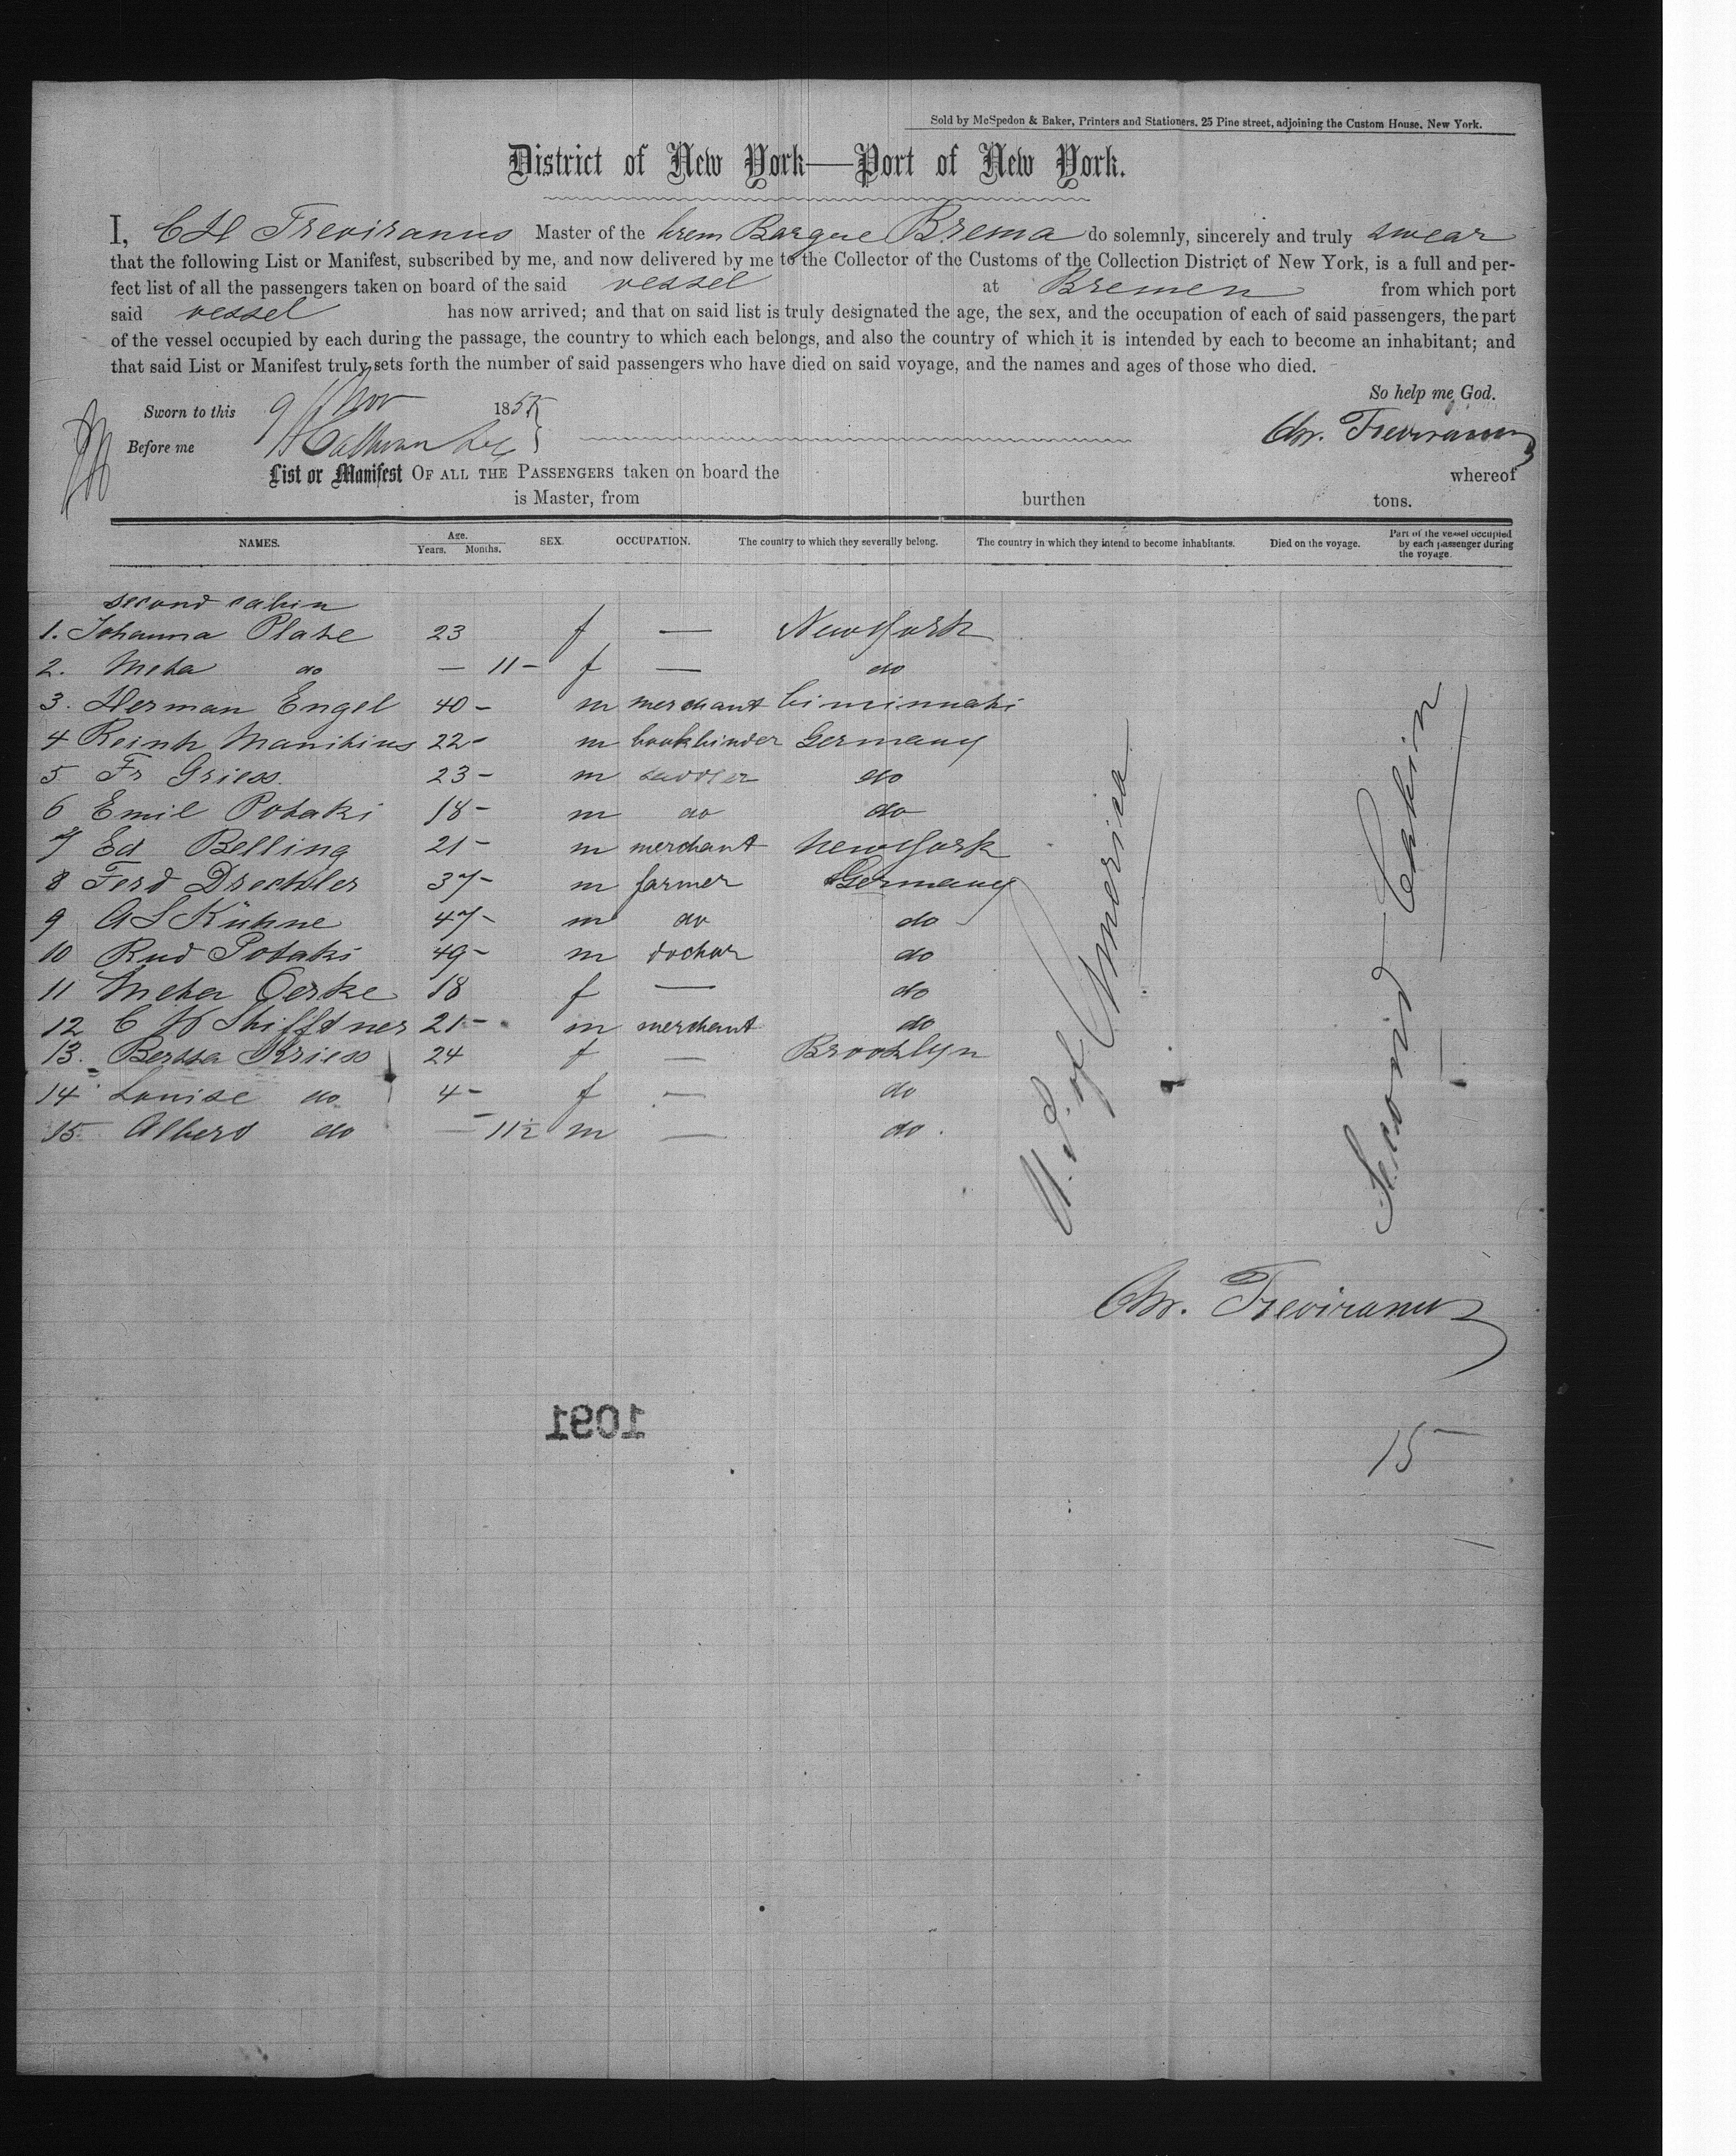 Sold by McSpedon & Baker, Printers and Stationers, 25 Pine street, adjoining the Custom House, New York.
District of New York—Port of New York.
I, C H Treviranus Master of the brem Barque Brema do solemnly, sincerely and truly swear
that the following List or Manifest, subscribed by me, and now delivered by me to the Collector of the Customs of the Collection District of New York, is a full and per-
fect list of all the passengers taken on board of the said vessel at Bremen from which port
said vessel has now arrived; and that on said list is truly designated the age, the sex, and the occupation of each of said passengers, the part
of the vessel occupied by each during the passage, the country to which each belongs, and also the country of which it is intended by each to become an inhabitant; and
that said List or Manifest truly sets forth the number of said passengers who have died on said voyage, and the names and ages of those who died.
So help me God.
Sworn to this 9 Nov 185
Chr. Treviranus
Before me
List or Manifest OF ALL THE PASSENGERS taken on board the whereof
is Master, from burthen tons.
NAMES. Age. Years. Months. SEX. OCCUPATION. The country to which they severally belong. The country in which they intend to become inhabitants. Died on the voyage. Part of the vessel occupied by each passenger during the voyage.
second cabin
1. Johanna Plate 23 f — New York
2. Meta do — 11 – f — do
3. Herman Engel 40 – m merchant
4 Reinh 22 – m bookbinder Germany
5 Fr Griess 23 – m do
6 Emil Potaki 18 – m do do
7 Ed Belling 21 – m merchant New York
8 Ferd Drechsler 37 – m farmer Germany
9 A L Kühne 47 – m do do
10 Rud Potaki 49 – m doctor do
11 Meta Oerke 18 f — do
12 C W Shifftner 21 – m merchant do
13. Bertha Kriess 24 f — Brooklyn
14 Louise do 4 – f — do
15 Albert do — 11½ m — do.
U. S. of America
Second Cabin
Chr. Treviranus
1091
15